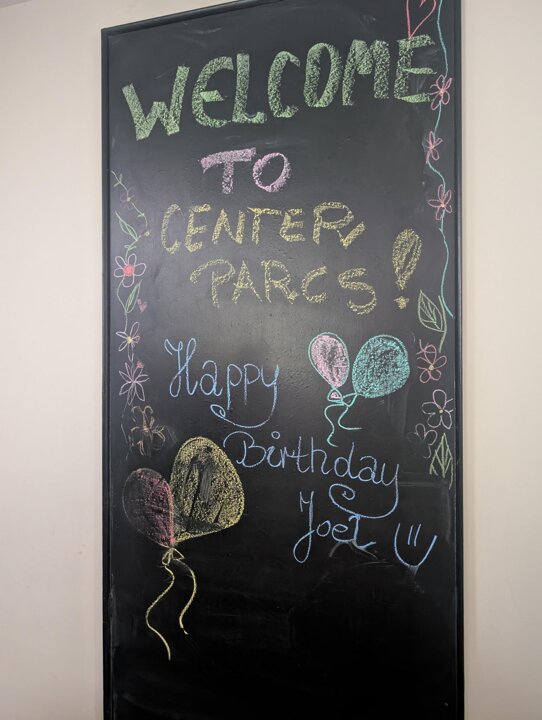 WELCOME
TO
CENTER
PARCS!
Happy
Birthday
Joel =)